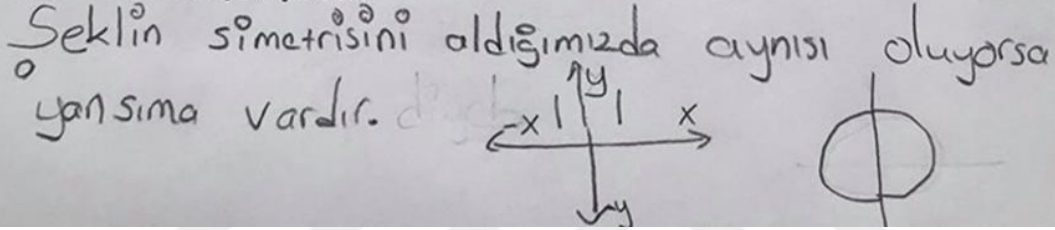 Şeklin simetrisini aldığımızda aynısı oluyorsa
yansıma vardır.
y
-x x
-y